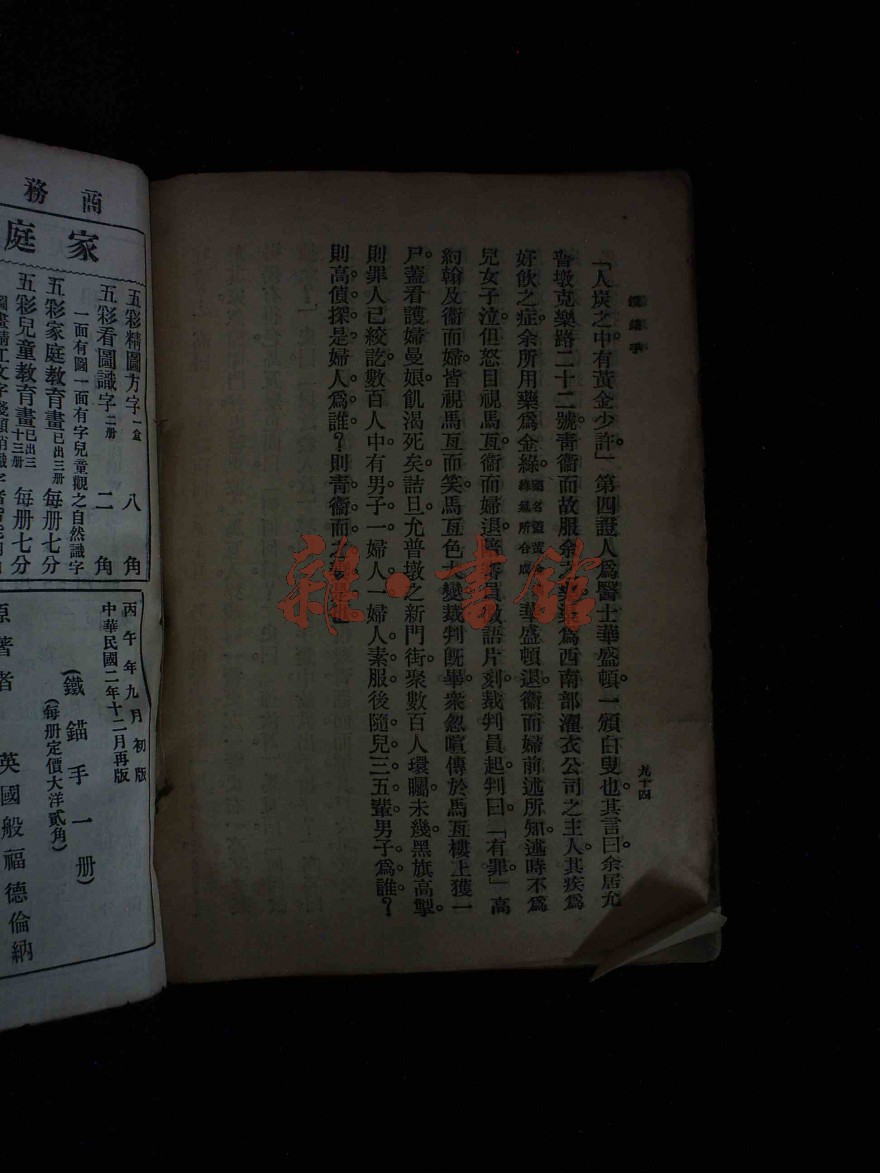 鐵錨手
「人炭之中有黃金少許」第四證人爲醫士華盛頓一頒白叟也其言曰余居允
普墩克樂路二十二號靑衞而故服余之藥渠爲西南部濯衣公司之主人其疾爲
好飮之症余所用藥爲金綠華盛頓退衞而婦前述所知述時不爲
兒女子泣但怒目視馬亙衞而婦退陪審員數語片刻裁判員起判曰「有罪」高
約翰及衞而婦皆視馬亙而笑馬亙色大變裁判旣畢衆忽喧傳於馬亙樓上獲一
尸蓋看護婦曼娘飢渴死矣詰旦允普墩之新門街聚數百人環矚未幾黑旗高掣
則罪人已絞訖數百人中有男子一婦人一婦人素服後隨兒三五輩男子爲誰？
則高偵探是婦人爲誰？則靑衞而之妻是也
九十四
雜·書館
商務
家庭
五彩精圖方字 一盒 八角
五彩看圖識字 二册 二角
一面有圖一面有字兒童觀之自然識字
五彩家庭教育畫 已出三册 每册七分
五彩兒童教育畫 已出三十三册 每册七分
丙午年九月初版
中華民國二年十二月再版
(鐵錨手一册)
(每册定價大洋貳角)
原著者 英國般福德倫納